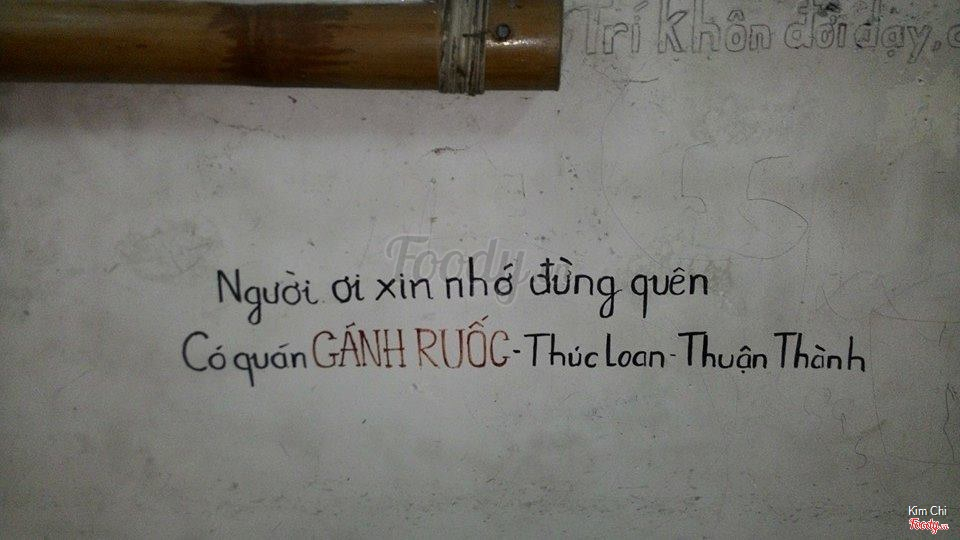 Trí khôn đời dạy,
Foody.vn
Người ơi xin nhớ đừng quên
Có quán GÁNH RUỐC - Thúc Loan - Thuận Thành
Kim Chi
Foody.vn